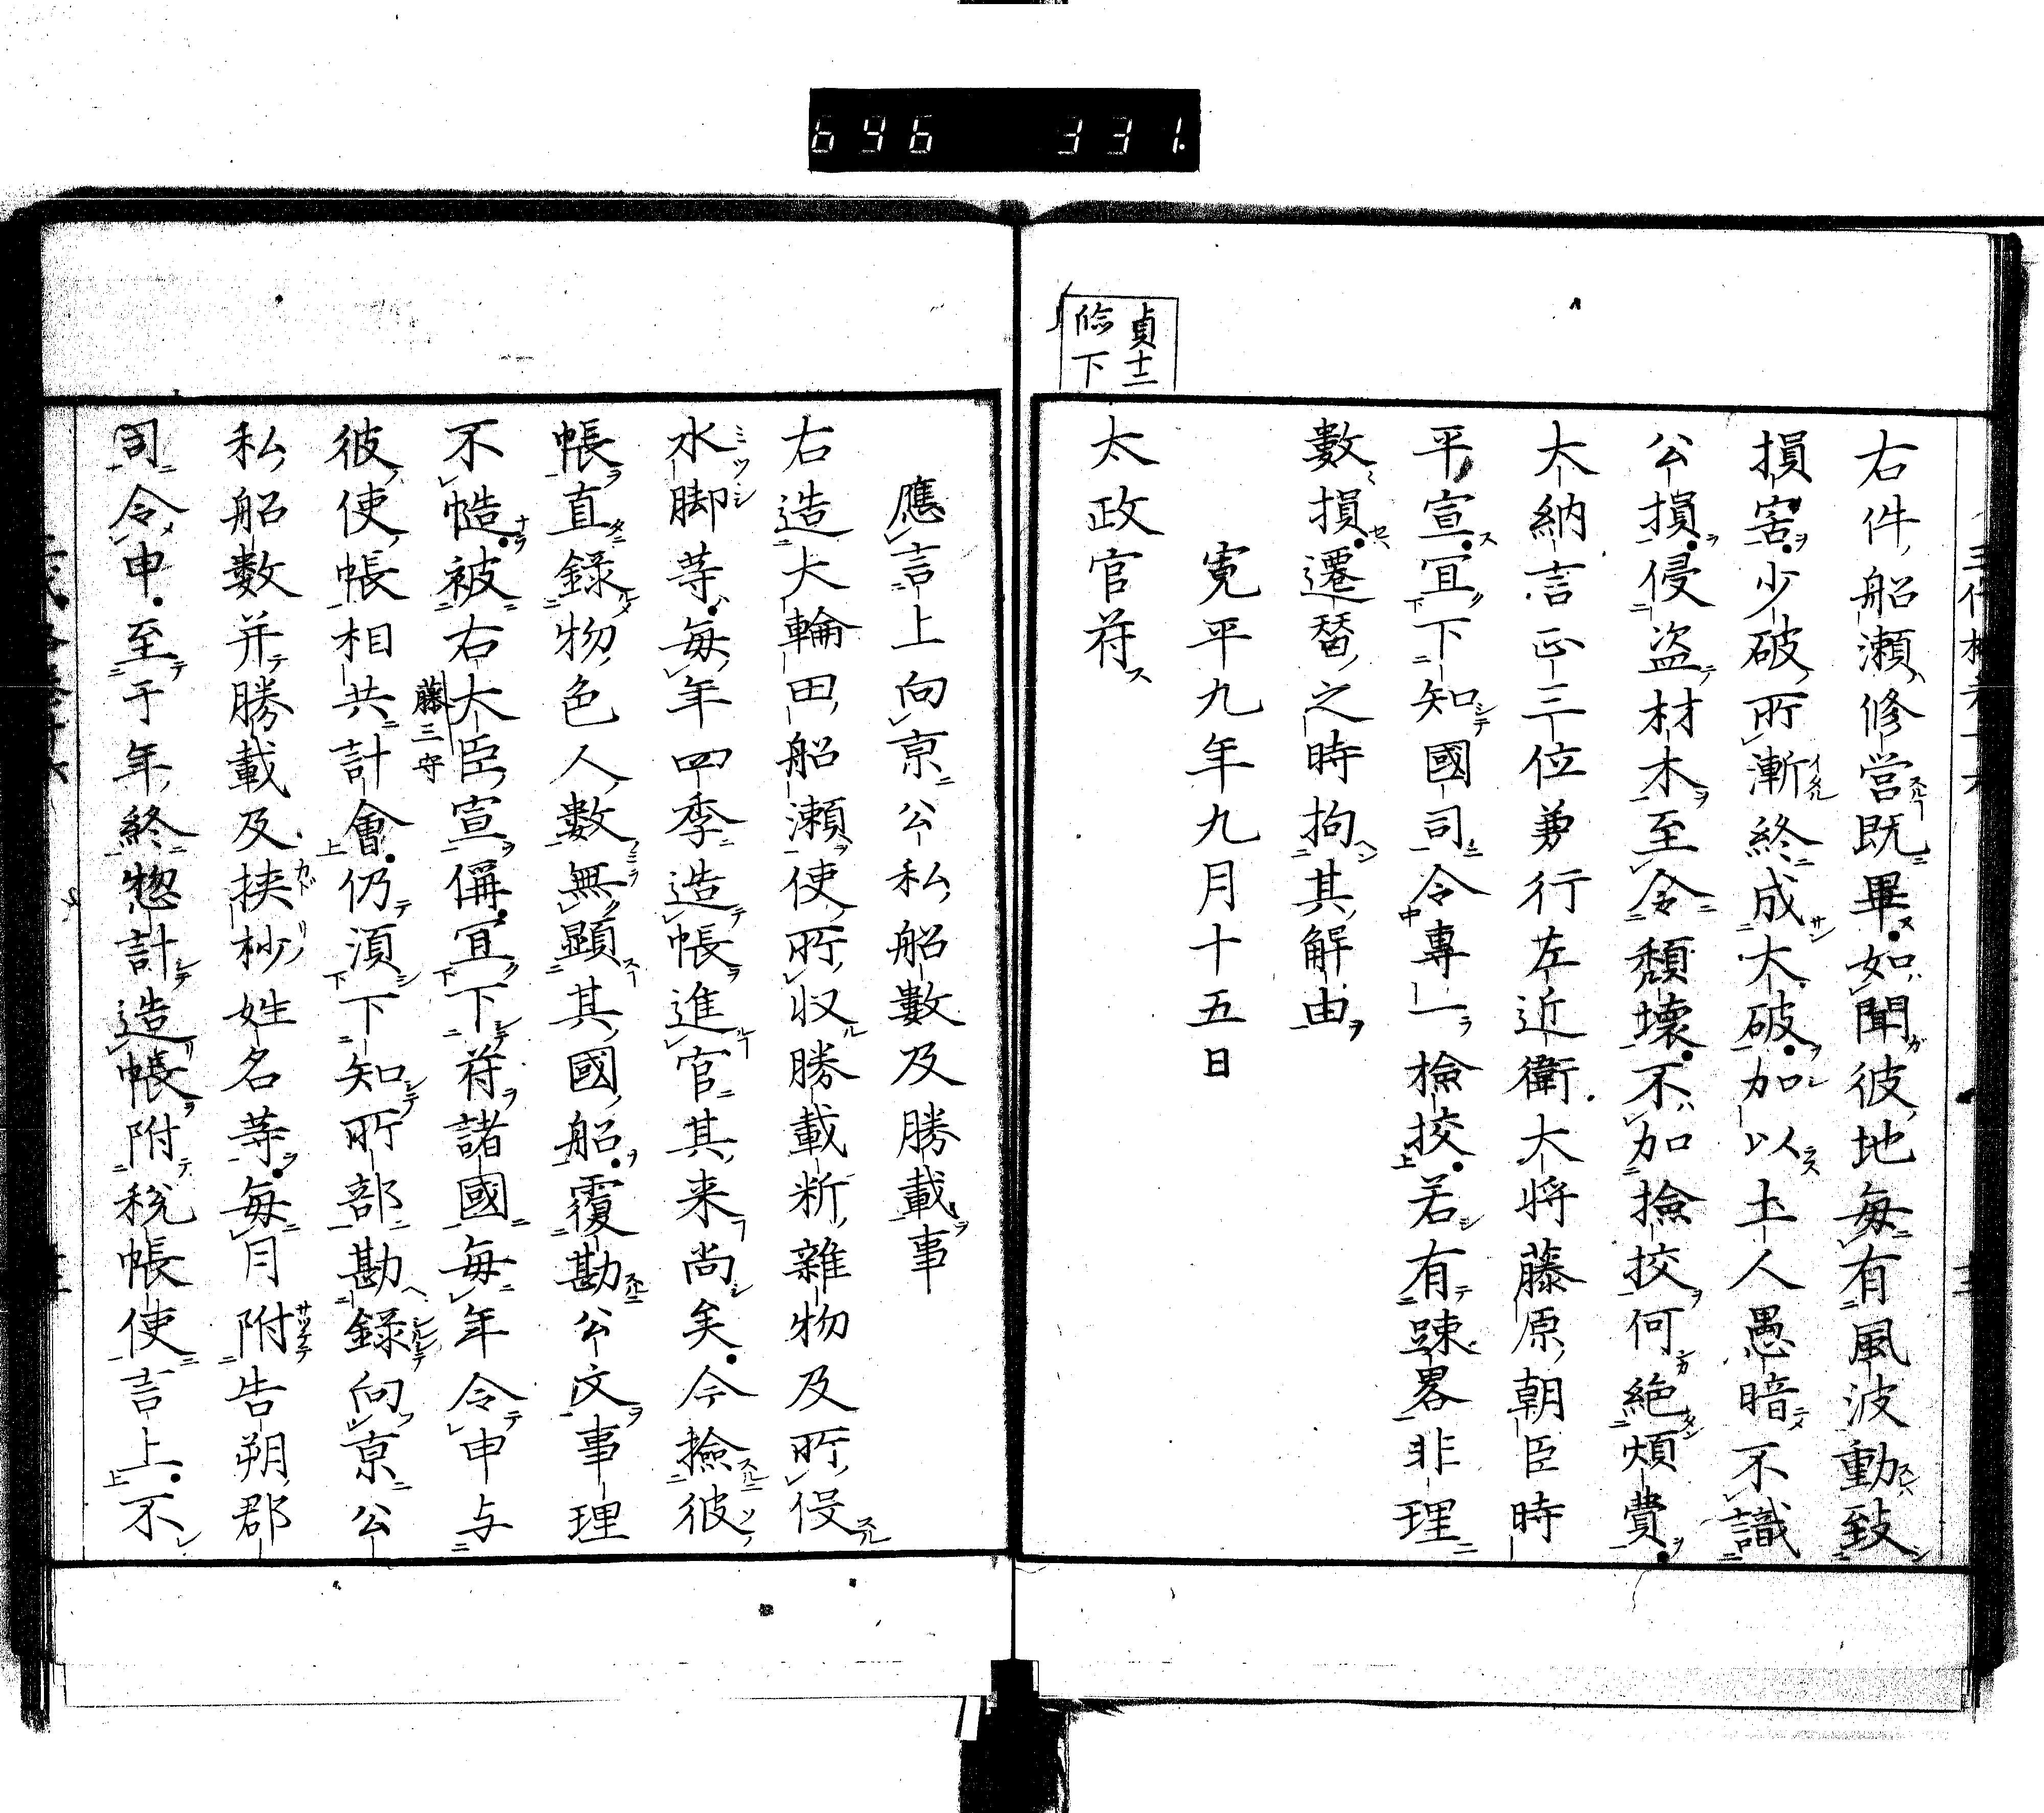 696 331.
貞十二
臨下
右件船瀬修営既畢如聞彼地毎有風波動致
損害少破所漸終成大破加以土人愚暗不識
公損侵盗材木至令頽壊不加撿挍何絶煩費
大納言正三位兼行左近衛大将藤原朝臣時
平宣冝下知國司令專一撿挍若有踈畧非理
數損遷替之時拘其解由
寛平九年九月十五日
太政官苻
應言上向亰公私船數及勝載事
右造大輪田船瀬使所収勝載新雑物及所役
水脚等毎年四季造帳進官其来尚矣今撿彼
帳直録物色人數無顕其國船覆勘公文事理
不慥被右大臣宣偁冝下苻諸國毎年令申与
藤三守
彼使帳相共計會仍湏下知所部勘録向亰公
私船數并勝載及挾杪姓名等毎月附告朔郡
司令申至于年終惣計造帳附税帳使言上不